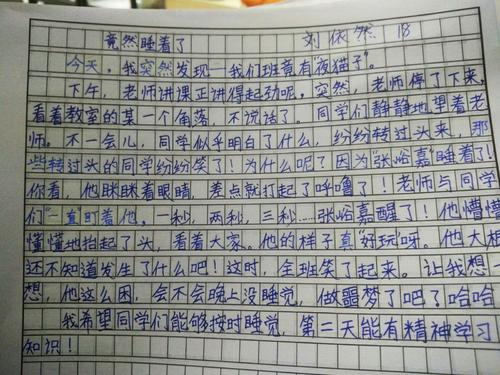 竟然睡着了 刘依然 18
今天，我突然发现一我们班竟有“夜猫子”。
下午，老师讲课正讲得起劲呢。突然，老师停了下来，
看着教室的某一个角落，不说话了。同学们静静地望着老
师。不一会儿，同学似乎明白了什么，纷纷转过头来，那
些转过头的同学纷纷笑了！为什么呢？因为“张俗嘉”睡着了！
你看，他眯眯着眼睛，差点就打起了呼噜了！老师与同学
们一直盯着他，一秒，两秒，三秒……张俗嘉醒了！他懵懵
懂懂地抬起了头，看着大家。他的样子真“好玩”呀。他大概
还不知道发生了什么吧！这时，全班笑了起来。让我想一
想，他这么困，会不会晚上没睡觉，做噩梦了吧？哈哈
我希望同学们能够按时睡觉，第二天能有精神学习
知识！